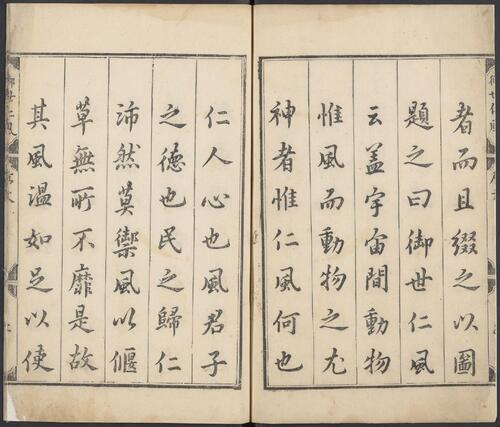 者而且綴之以圖
題之曰御世仁風
云盖宇宙間動物
惟風而動物之尤
神者惟仁風何也
仁人心也風君子
之德也民之歸仁
沛然莫禦風以偃
草無所不靡是故
其風溫如足以使